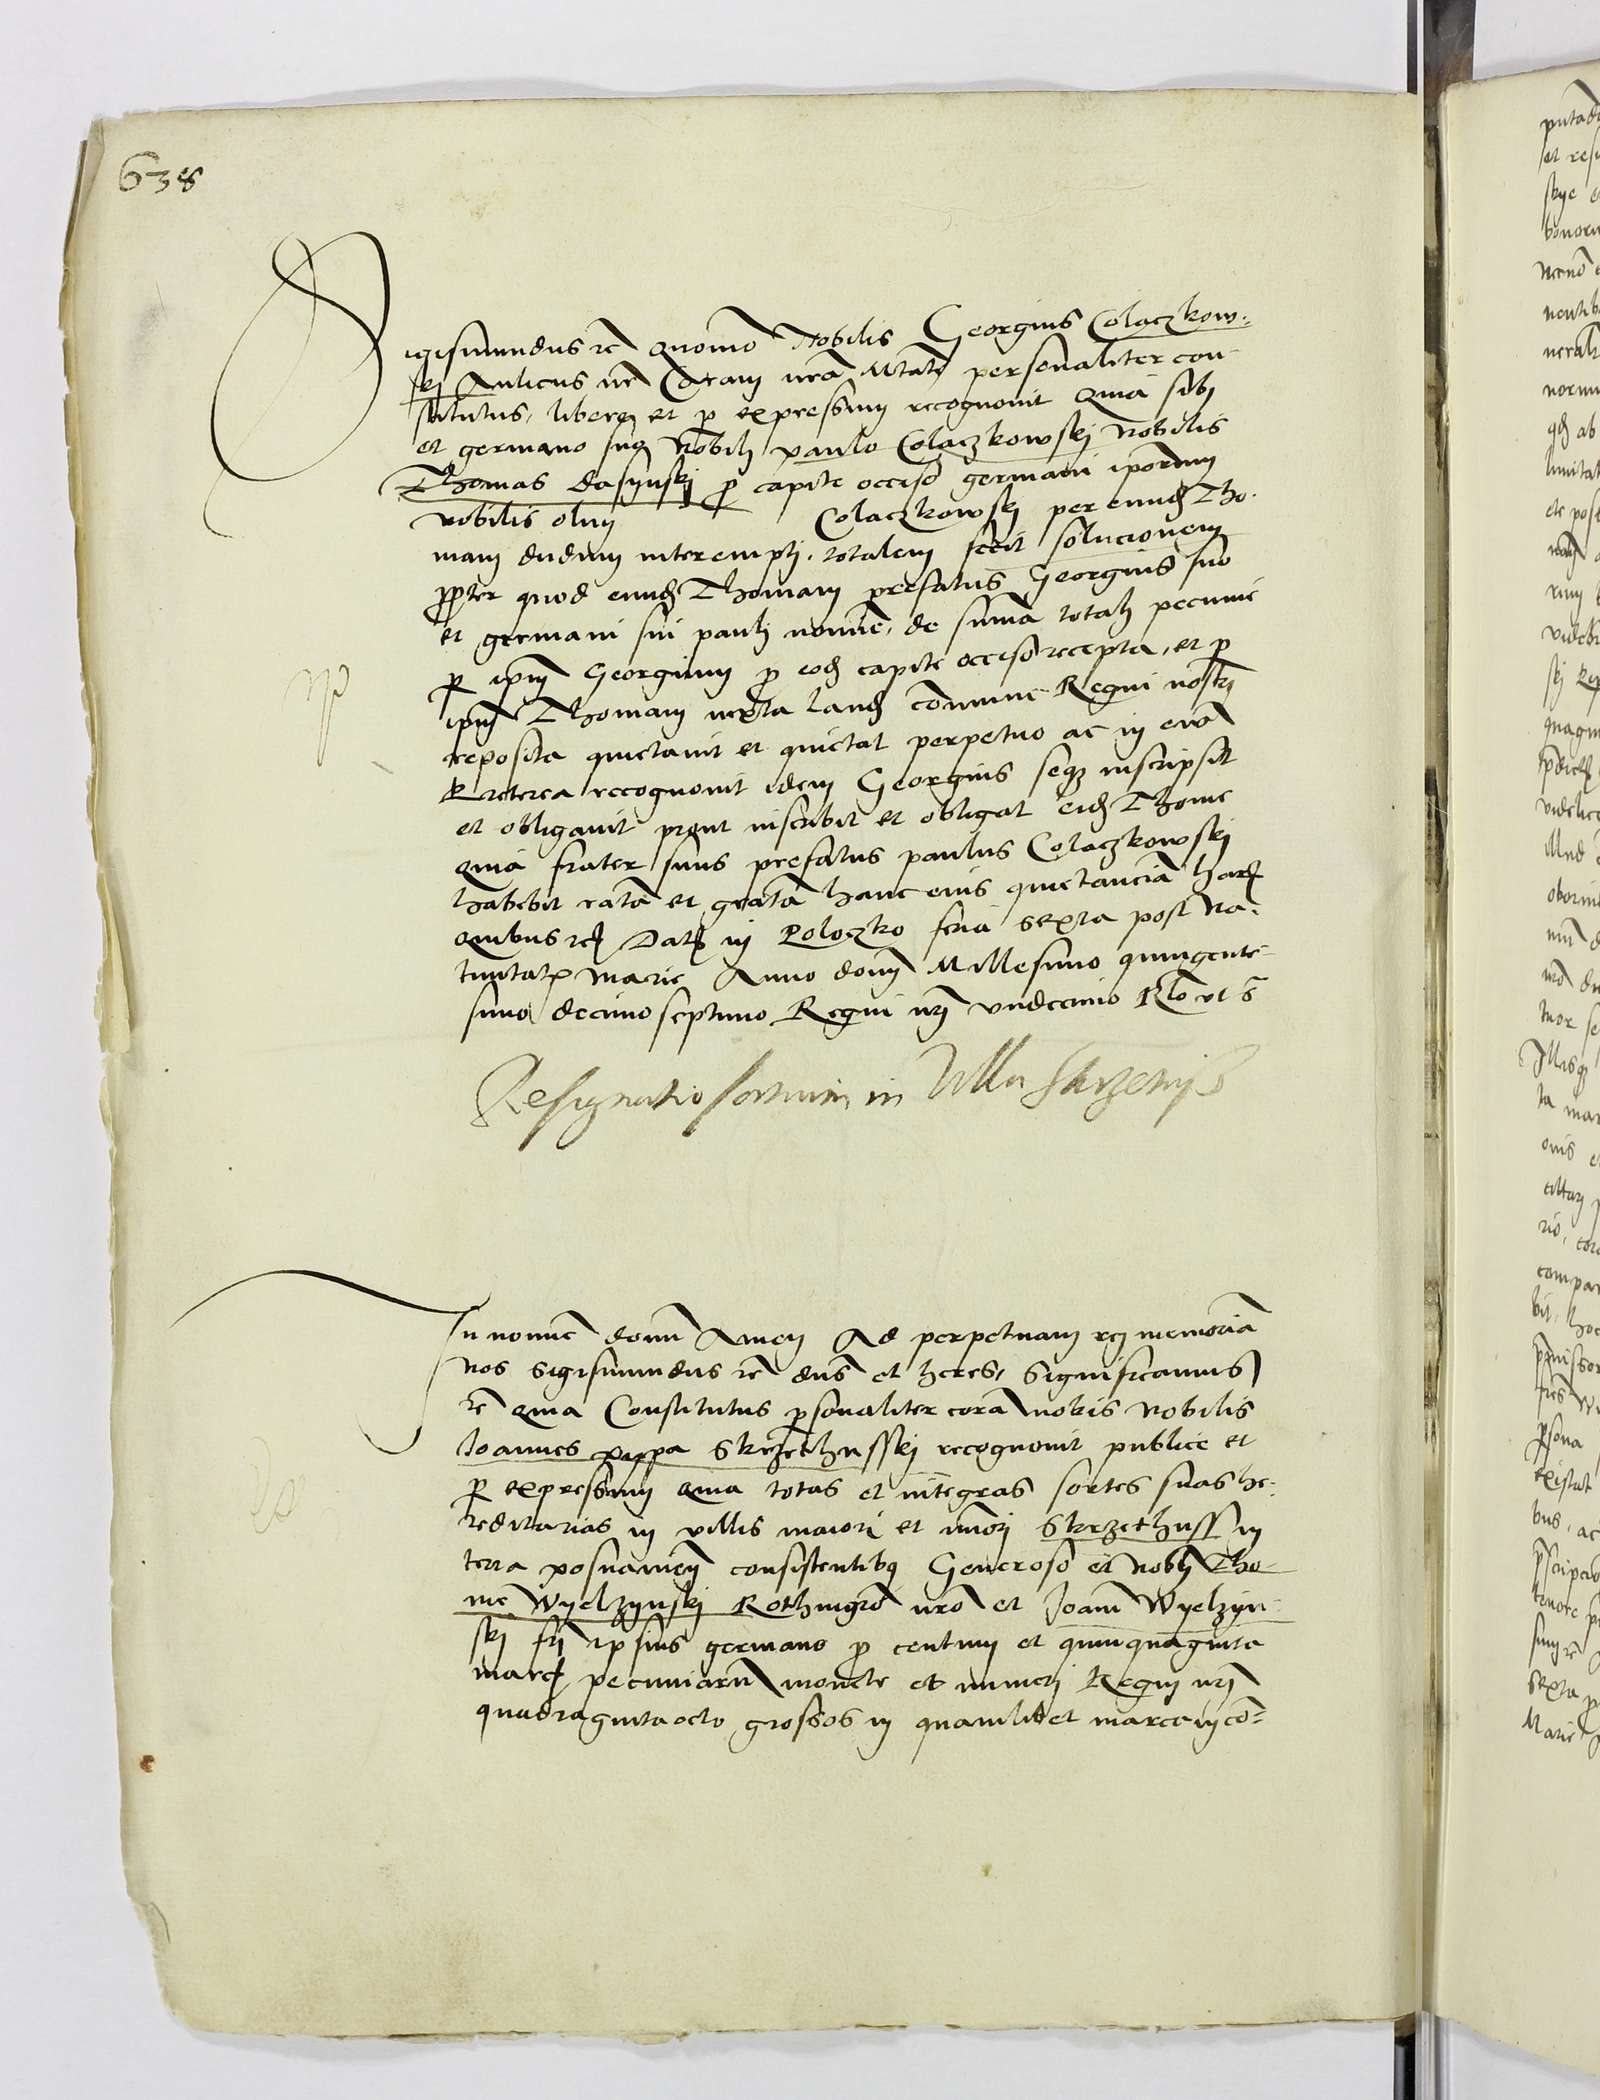 638
Sigismundus rc̄ Quomō Nobilis Georgius Colaczkow-
skj Aulicus nr̄ Coram nr̄a Mtāte personaliter con-
stitutus, libere et p̄ expressum recognovit Quia sibj
et germano suo Nobilj paulo Colaczkowskj Nobilis
Thomas dasynskj p̄ capite occiso germani ipōrum
nobilis olim Colaczkowskj per eundē Tho-
mam dudum interemptj, totalem fecit solucionem
propter quod eundē Thomam prefatus Georgius suo
et germani sui paulj nomīe, de summa totalj pecunie
p̄ ipm̄ Georgium p̄ eodē capite occiso recepta, et p̄
ipm̄ Thomam iuxta laudū cōmune Regni nostri
reposita quietavit et quietat perpetuo ac in evū
Preterea recognovit idem Georgius seqz inscripsit
et obligavit prout inscribit et obligat eidē Thome
Quia frater suus prefatus paulus Colaczkowskj
habebit ratā et gratā hanc eius quietanciā harū
Quibus rc̄ Datū in Poloczko feria sexta post Na-
tivitatē Marie Anno domī Millesimo quingente-
simo decimo septimo Regni nrj̄ undecimo Rlō ut s̄
Resignatio sortium in Villa Skrzetuss
In nomīe domī Amen Ad perpetuam rej memoriā
Nos Sigismundus rc̄ dn̄s et heres, Significamus
rc̄ Quia Constitutus p̄sonaliter corā nobis Nobilis
Ioannes pyppa Skrzethusskj recognovit publice et
p̄ expressum Quia totas et integras sortes suas he-
reditarias in villis maiorj et minorj Skrzethuss in
terra posnanien̄ consistentibus Generoso et Nobilj Tho-
me Wyelzynskj Rothmgrō nrō et Joannj Wyelzyn-
skj frj̄ ipsius germano p̄ centum et quinquaginta
marcis pecuniarū monete et numerj Regni nrj̄
quadraginta octo grossos in quamlibet marcam cō-